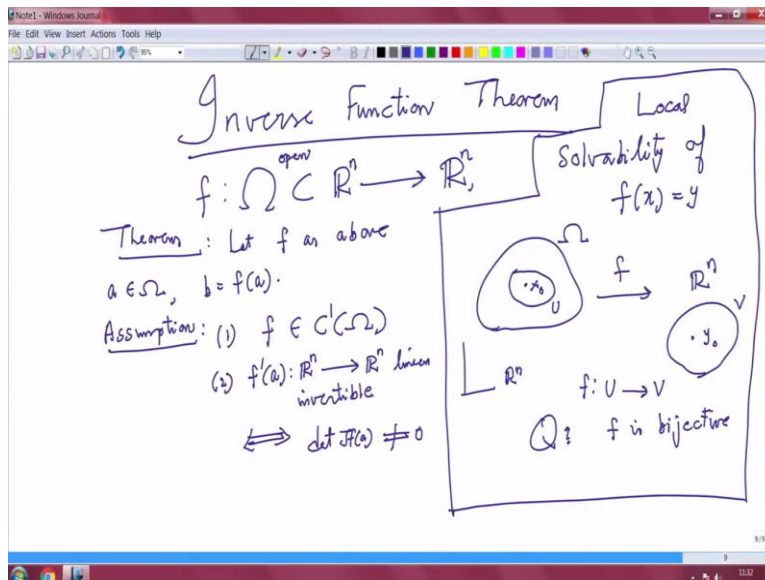 Note1 - Windows Journal
File Edit View Insert Actions Tools Help
95%
Inverse Function Theorem
f : Ω ⊂ ℝⁿ → ℝⁿ,
open
Theorem : Let f as above
a ∈ Ω, b = f(a).
Assumption : (1) f ∈ C'(Ω)
(2) f'(a) : ℝⁿ → ℝⁿ linear
invertible
⟺ det Jf(a) ≠ 0
Local
Solvability of
f(x) = y
Ω
f
ℝⁿ
x₀
U
V
y₀
ℝⁿ
f : U → V
Q : f is bijective
9/9
9
11:32